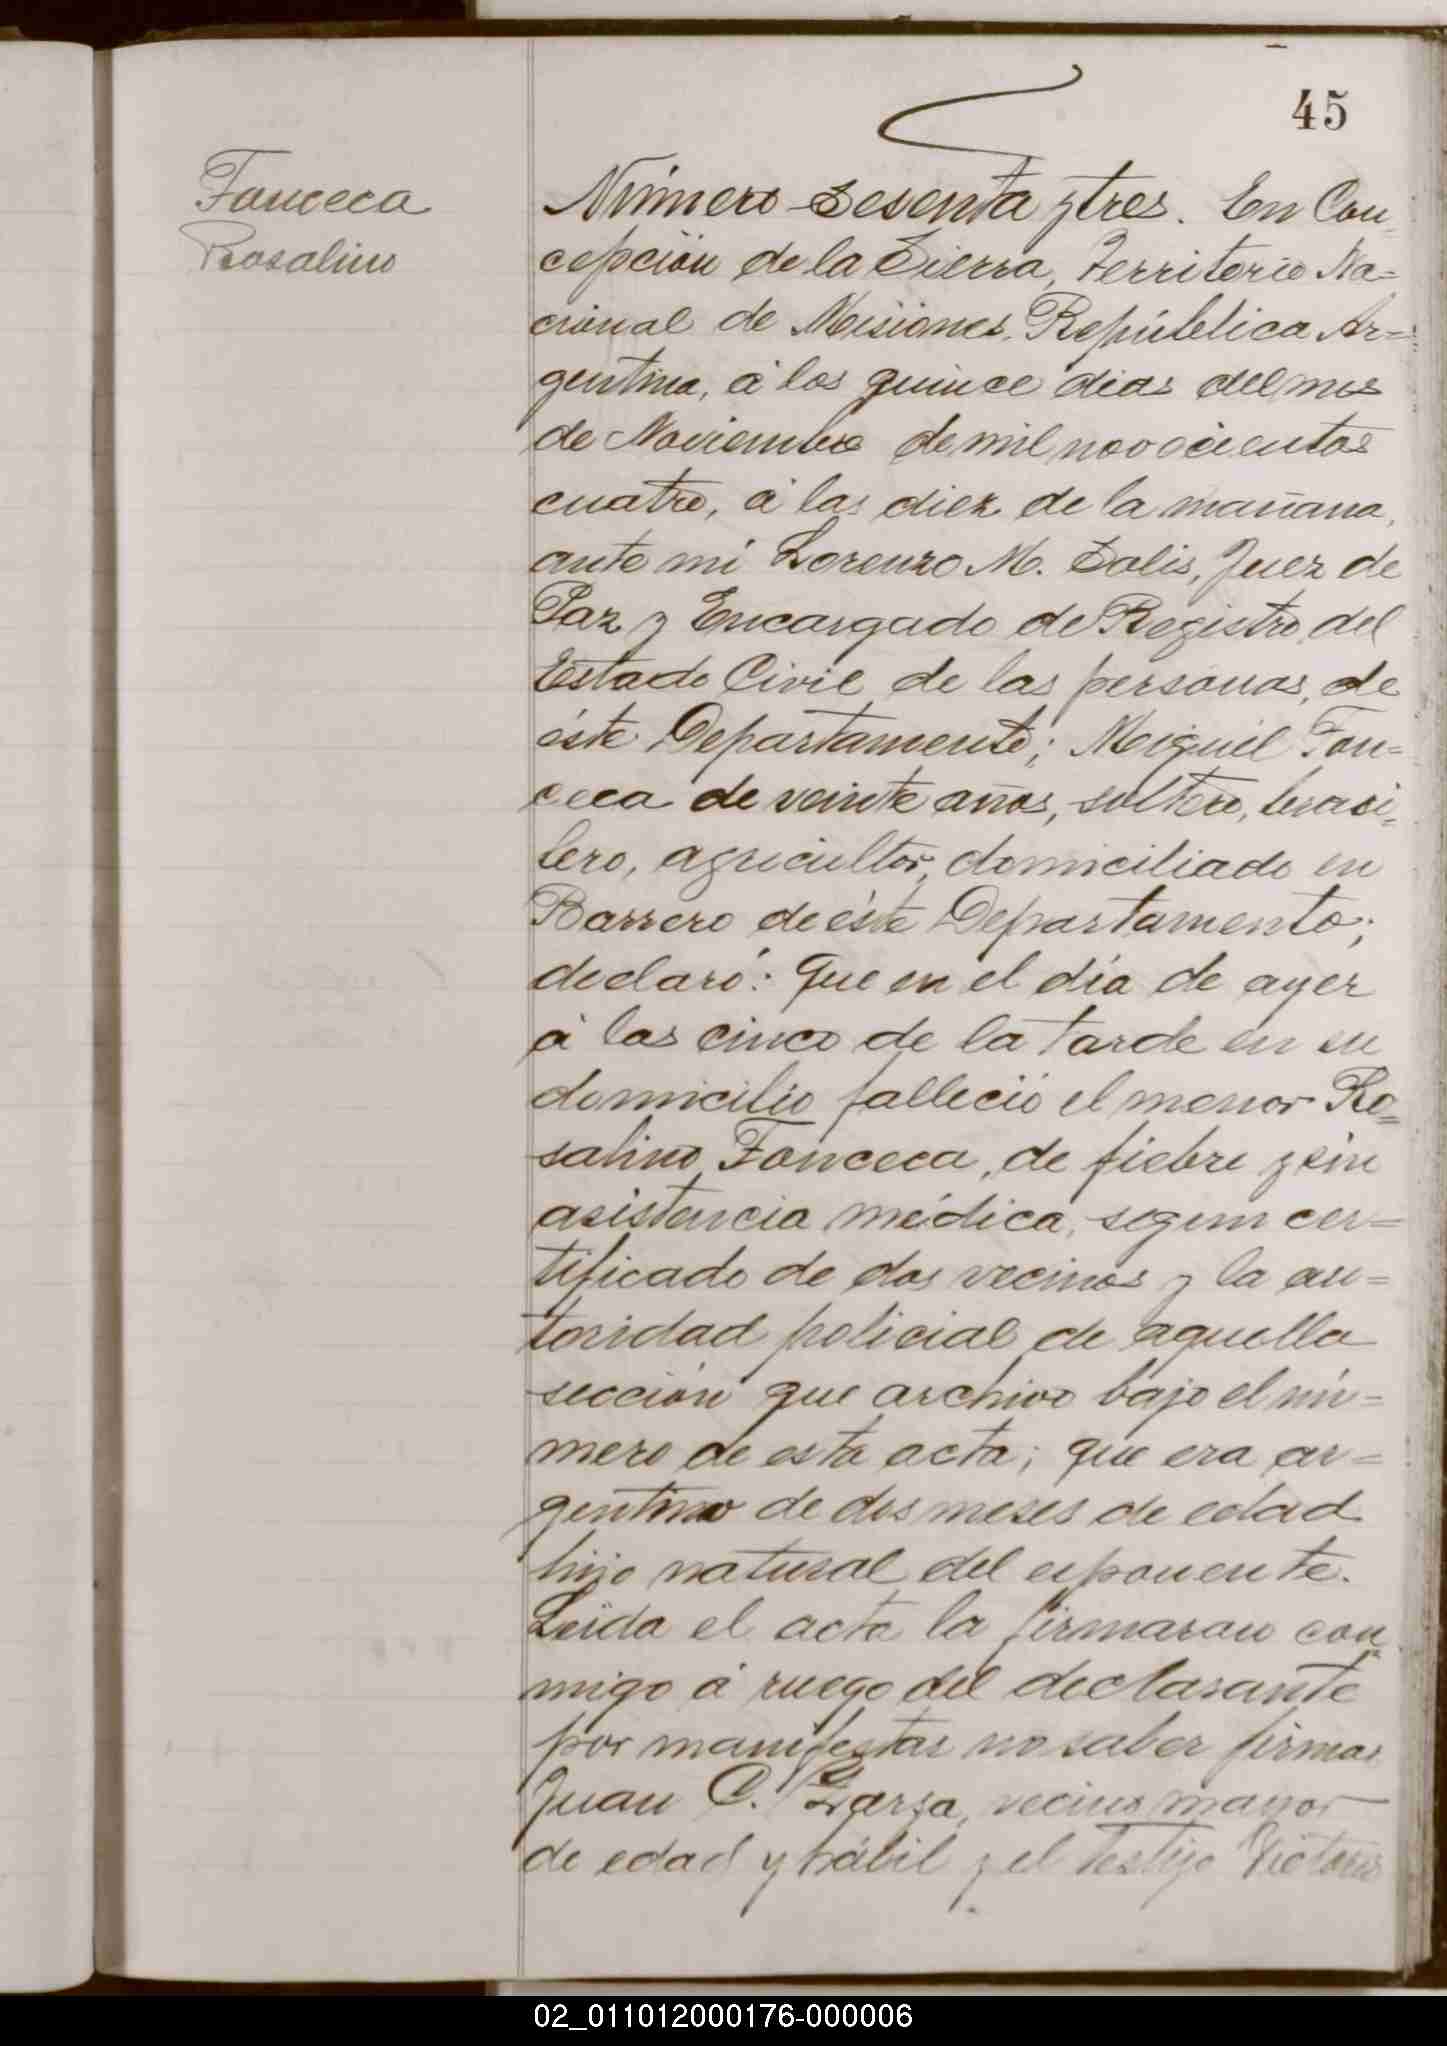 45
Fonceca
Rosalino
Número Sesenta y tres. En Con-
cepción de la Sierra, Territorio Na=
cional de Misiones, República Ar=
gentina, á los quince dias del mes
de Noviembre de mil novocientos
cuatro, á las diez de la mañana,
ante mi Lorenzo M. Solis, Juez de
Paz y Encargado de Registro del
Estado Civil de las personas, de
éste Departamento; Miguel Fon=
ceca de veinte años, soltero, brasi=
lero, agricultor, domiciliado en
Barrero de éste Departamento;
declaró: Que en el día de ayer
á las cinco de la tarde en su
domicilio falleció el menor Ro=
salino Fonceca, de fiebre y sin
asistencia médica, segun cer=
tificado de dos vecinos y la au=
toridad policial de aquella
sección que archivo bajo el nú=
mero de esta acta; que era ar=
gentino de dos meses de edad
hijo natural del esponente.
Leida el acta la firmaron con
migo á ruego del declarante
por manifestar no saber firmar
Juan C. Zarza, vecino mayor
de edad y hábil y el testigo
02_011012000176-000006